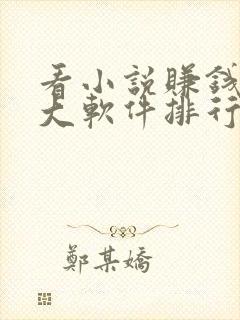 看小説賺錢
大軟件排行
鄭某嬌